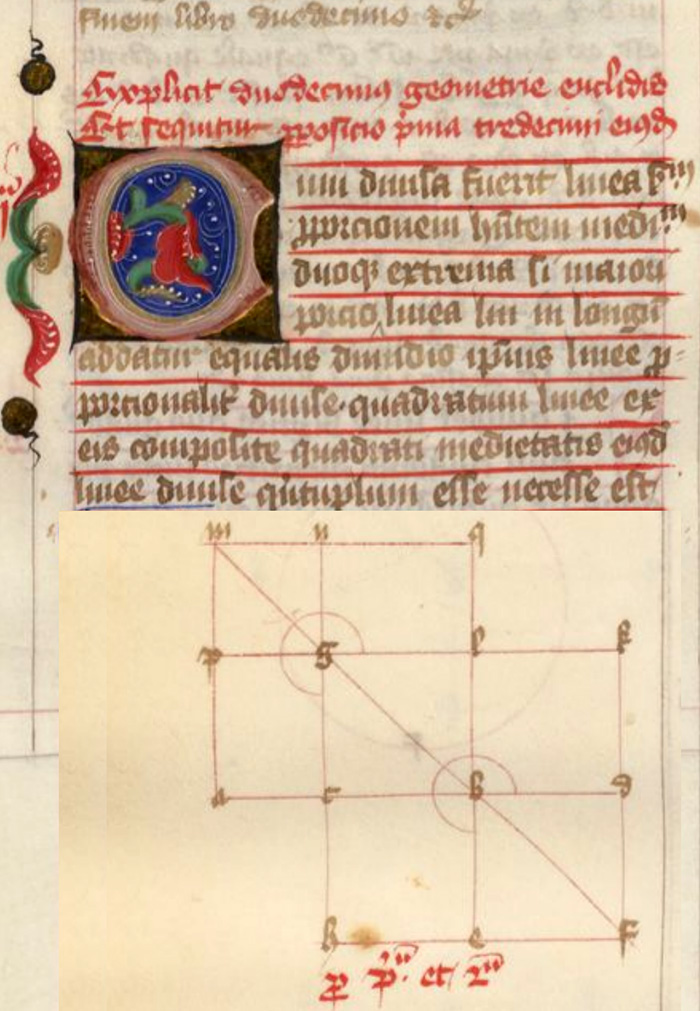 finem libro duodecimo &c
Explicit duodecimus geometrie euclidis
Et sequitur ꝓposicio p̄ma tredecimi eiusd
Cum diuisa fuerit linea s̄m
ꝓporcionem hn̄tem medium
duoqꝫ extrema si maiori
porcio linea lin in longum
addatur equalis dimidio ipsius linee p-
porcionalit̄ diuise quadratum linee ex
eis composite quadrati medietatis eiusd
linee diuise quītuplum esse necesse est
m n q
p s l k
a c b d
h e f
ꝓ pᵃ et 2ᵃ